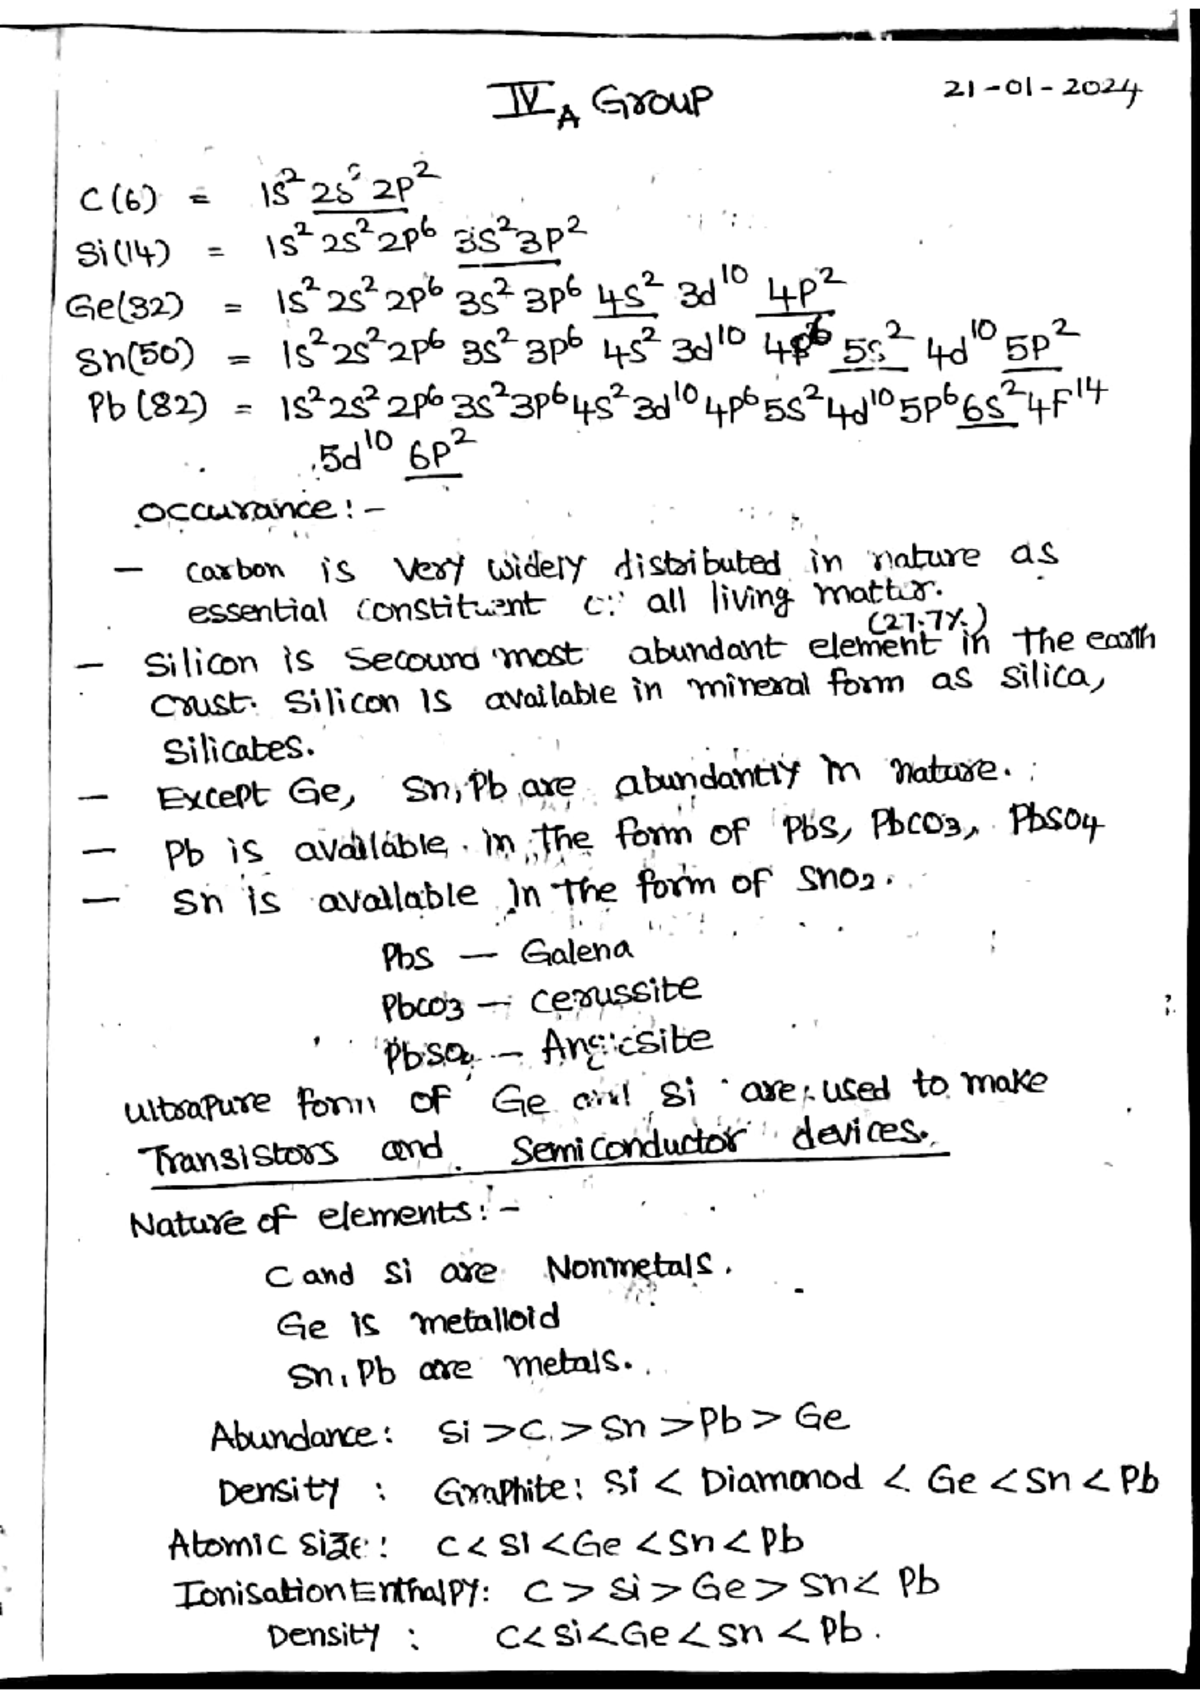 IV A Group 21-01-2024
C(6) = 1s² 2s² 2p²
Si(14) = 1s² 2s² 2p⁶ 3s² 3p²
Ge(32) = 1s² 2s² 2p⁶ 3s² 3p⁶ 4s² 3d¹⁰ 4p²
Sn(50) = 1s² 2s² 2p⁶ 3s² 3p⁶ 4s² 3d¹⁰ 4p⁶ 5s² 4d¹⁰ 5p²
Pb(82) = 1s² 2s² 2p⁶ 3s² 3p⁶ 4s² 3d¹⁰ 4p⁶ 5s² 4d¹⁰ 5p⁶ 6s² 4F¹⁴
5d¹⁰ 6p²
occurance:-
- carbon is very widely distributed in nature as
essential constituent all living mattur.
(27.7%)
- Silicon is Secound most abundant element in The earth
Crust. Silicon is available in mineral form as silica,
Silicates.
- Except Ge, Sn, Pb are abundantly in nature.
- Pb is available in the form of PbS, PbCO3, PbSO4
- Sn is available in the form of SnO2.
PbS - Galena
PbCO3 - Cerussite
PbSO4 -
ultrapure form of Ge and Si are used to make
Transistors and Semiconductor devices.
Nature of elements:-
C and Si are Nonmetals.
Ge is metalloid
Sn, Pb are metals.
Abundance: Si > C > Sn > Pb > Ge
Density : Graphite: Si < Diamonod < Ge < Sn < Pb
Atomic size: C < Si < Ge < Sn < Pb
Ionisation Enthalpy: C > Si > Ge > Sn < Pb
Density : C < Si < Ge < Sn < Pb.